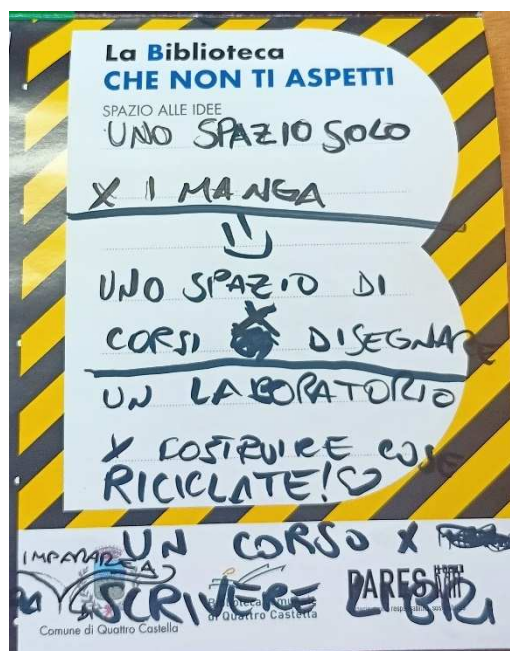 La Biblioteca
CHE NON TI ASPETTI
SPAZIO ALLE IDEE
UNO SPAZIO SOLO
X I MANGA
UNO SPAZIO DI
CORSI X DISEGNARE
UN LABORATORIO
X COSTRUIRE COSE
RICICLATE!
UN CORSO X
IMPARARE A
SCRIVERE LIBRI
PARES
di Quattro Castella
Comune di Quattro Castella